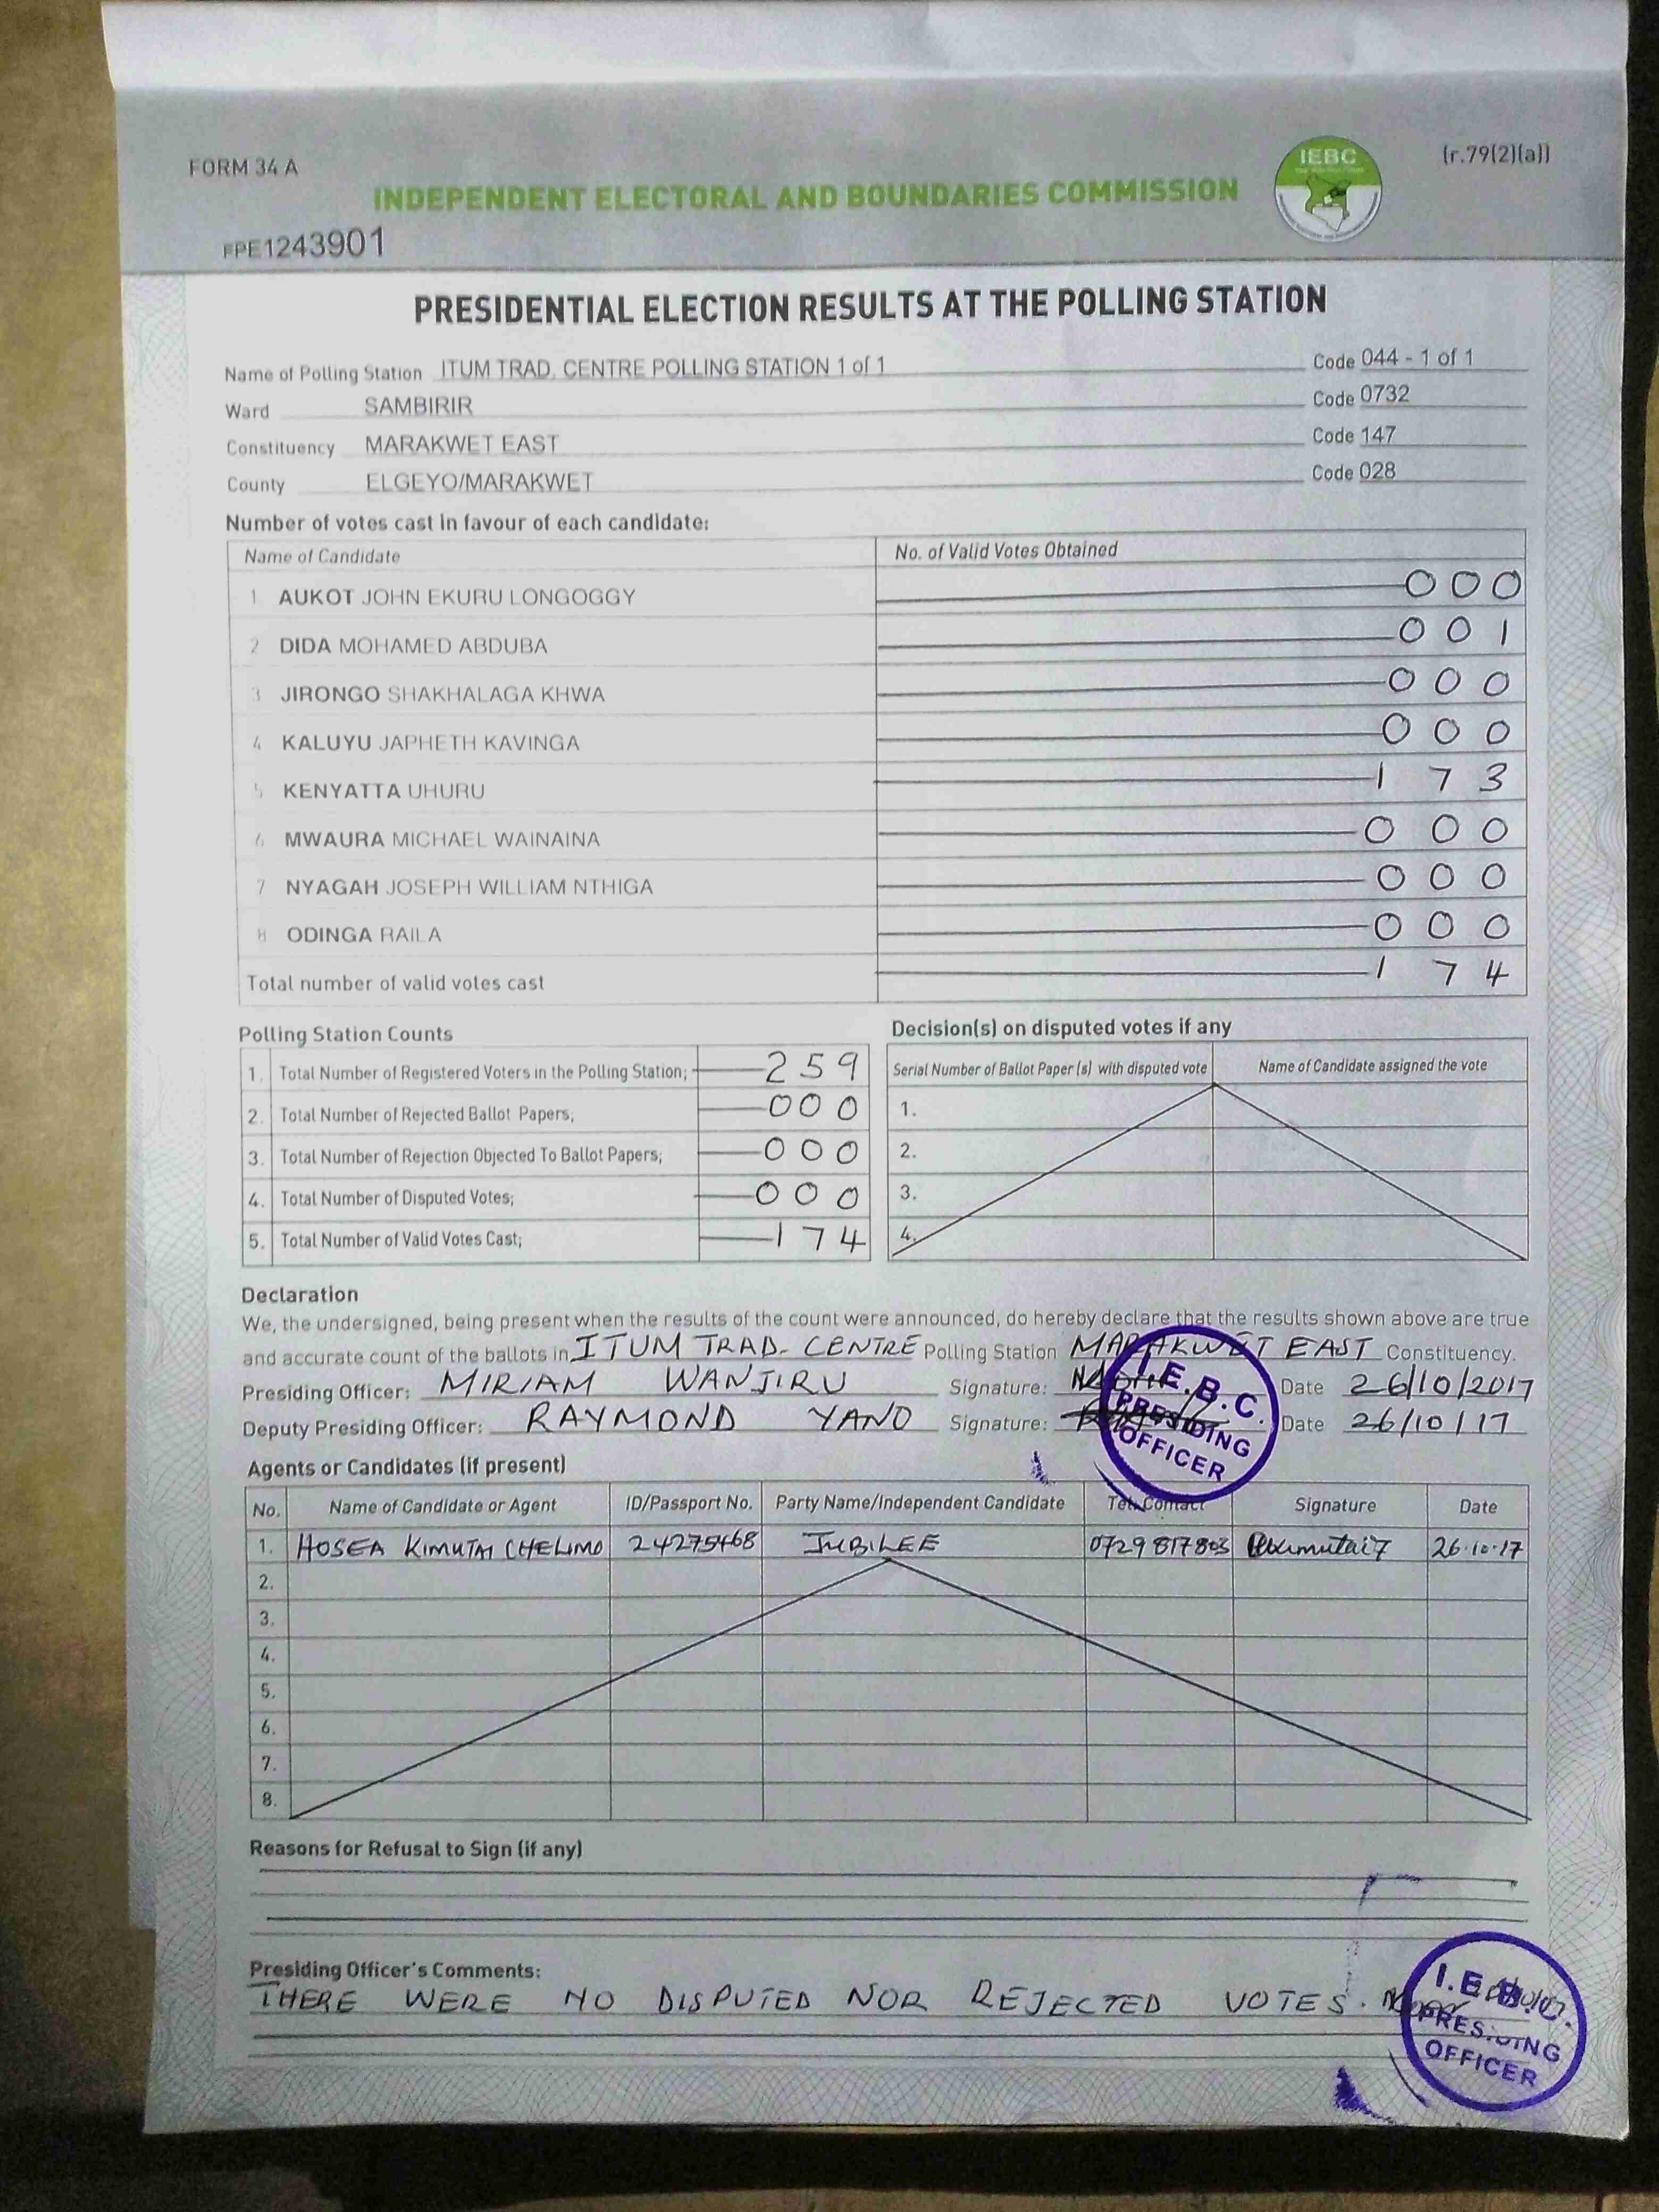 FORM 34 A
IEBC
(r.79(2)(a))
INDEPENDENT ELECTORAL AND BOUNDARIES COMMISSION
FPE1243901
PRESIDENTIAL ELECTION RESULTS AT THE POLLING STATION
Name of Polling Station ITUM TRAD. CENTRE POLLING STATION 1 of 1 Code 044 - 1 of 1
Ward SAMBIRIR Code 0732
Constituency MARAKWET EAST Code 147
County ELGEYO/MARAKWET Code 028
Number of votes cast in favour of each candidate:
Name of Candidate No. of Valid Votes Obtained
1 AUKOT JOHN EKURU LONGOGGY 000
2 DIDA MOHAMED ABDUBA 001
3 JIRONGO SHAKHALAGA KHWA 000
4 KALUYU JAPHETH KAVINGA 000
5 KENYATTA UHURU 173
6 MWAURA MICHAEL WAINAINA 000
7 NYAGAH JOSEPH WILLIAM NTHIGA 000
8 ODINGA RAILA 000
Total number of valid votes cast 174
Polling Station Counts
1. Total Number of Registered Voters in the Polling Station; 259
2. Total Number of Rejected Ballot Papers; 000
3. Total Number of Rejection Objected To Ballot Papers; 000
4. Total Number of Disputed Votes; 000
5. Total Number of Valid Votes Cast; 174
Decision(s) on disputed votes if any
Serial Number of Ballot Paper (s) with disputed vote Name of Candidate assigned the vote
1.
2.
3.
4.
Declaration
We, the undersigned, being present when the results of the count were announced, do hereby declare that the results shown above are true
and accurate count of the ballots in ITUM TRAD. CENTRE Polling Station MARAKWET EAST Constituency.
Presiding Officer: MIRIAM WANJIRU Signature: Date 26/10/2017
Deputy Presiding Officer: RAYMOND YANO Signature: Date 26/10/17
I.E.B.C.
PRESIDING
OFFICER
Agents or Candidates (if present)
No. Name of Candidate or Agent ID/Passport No. Party Name/Independent Candidate Tel. Contact Signature Date
1. HOSEA KIMUTAI CHELIMO 24275468 JUBILEE 0729817803 26.10.17
2.
3.
4.
5.
6.
7.
8.
Reasons for Refusal to Sign (if any)
Presiding Officer's Comments:
THERE WERE NO DISPUTED NOR REJECTED VOTES.
I.E.B.C.
PRESIDING
OFFICER